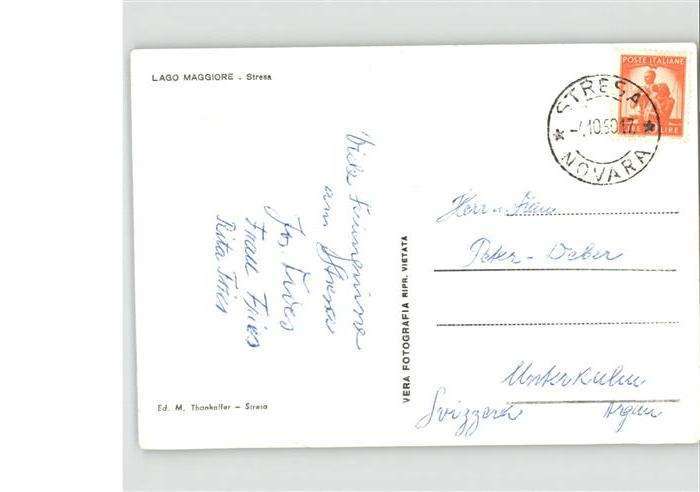 LAGO MAGGIORE . Stresa
POSTE ITALIANE
LIRE
STRESA
-4.10.50.17
NOVARA
Viele
am Stresa
Jos. Fries
Frau Fries
Rita Fries
VERA FOTOGRAFIA RIPR. VIETATA
Herr u. Frau
Peter - Weber
Unterkulm
Svizzera Argau
Ed. M. Thankoffer – Stresa